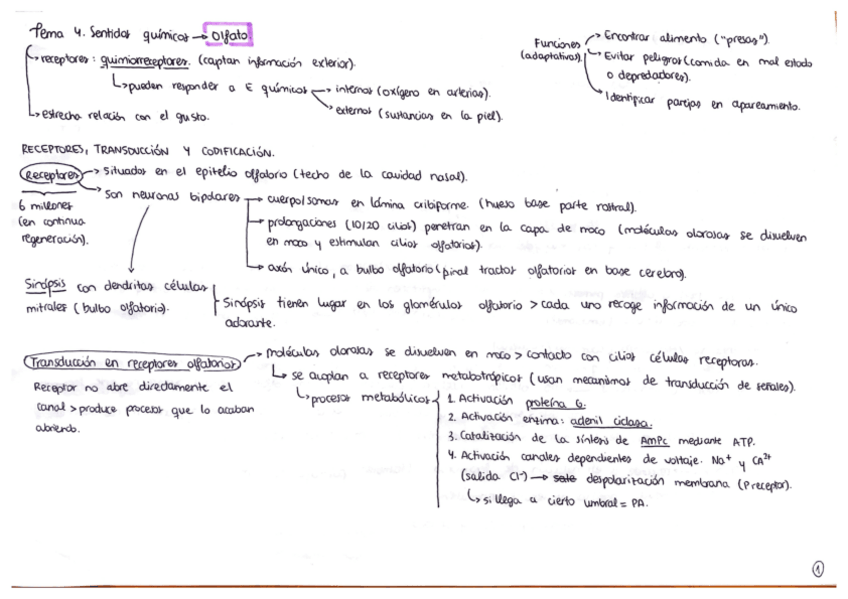 Tema 4. Sentidos químicos → Olfato
→ receptores: quimiorreceptores. (captan información exterior).
↳ pueden responder a E químicos → internos (oxígeno en arterias).
→ externos (sustancias en la piel).
→ estrecha relación con el gusto.
Funciones (adaptativas)
→ Encontrar alimento ("presas").
→ Evitar peligros (comida en mal estado
o depredadores).
→ Identificar parejas en apareamiento.
RECEPTORES, TRANSDUCCIÓN Y CODIFICACIÓN.
Receptores → situados en el epitelio olfatorio (techo de la cavidad nasal).
→ son neuronas bipolares
→ cuerpo/somas en lámina cribiforme. (hueso base parte rostral).
6 millones
(en continua
regeneración).
→ prolongaciones (10/20 cilios) penetran en la capa de moco (moléculas olorosas se disuelven
en moco y estimulan cilios olfatorios).
→ axón único, a bulbo olfatorio (final tractos olfatorios en base cerebro).
Sinápsis con dendritas células
mitrales (bulbo olfatorio).
Sinápsis tienen lugar en los glomérulos olfatorio > cada uno recoge información de un único
odorante.
Transducción en receptores olfatorios
→ moléculas olorosas se disuelven en moco > contacto con cilios células receptoras.
Receptor no abre directamente el
canal > produce procesos que lo acaban
abriendo.
↳ se acoplan a receptores metabotrópicos (usan mecanismos de transducción de señales).
↳ procesos metabólicos
1. Activación proteína G.
2. Activación enzima: adenil ciclasa.
3. Catalización de la síntesis de AMPc mediante ATP.
4. Activación canales dependientes de voltaje. Na⁺ y CA²⁺
(salida Cl⁻) → sale despolarización membrana (Preceptor).
↳ si llega a cierto umbral = PA.
1